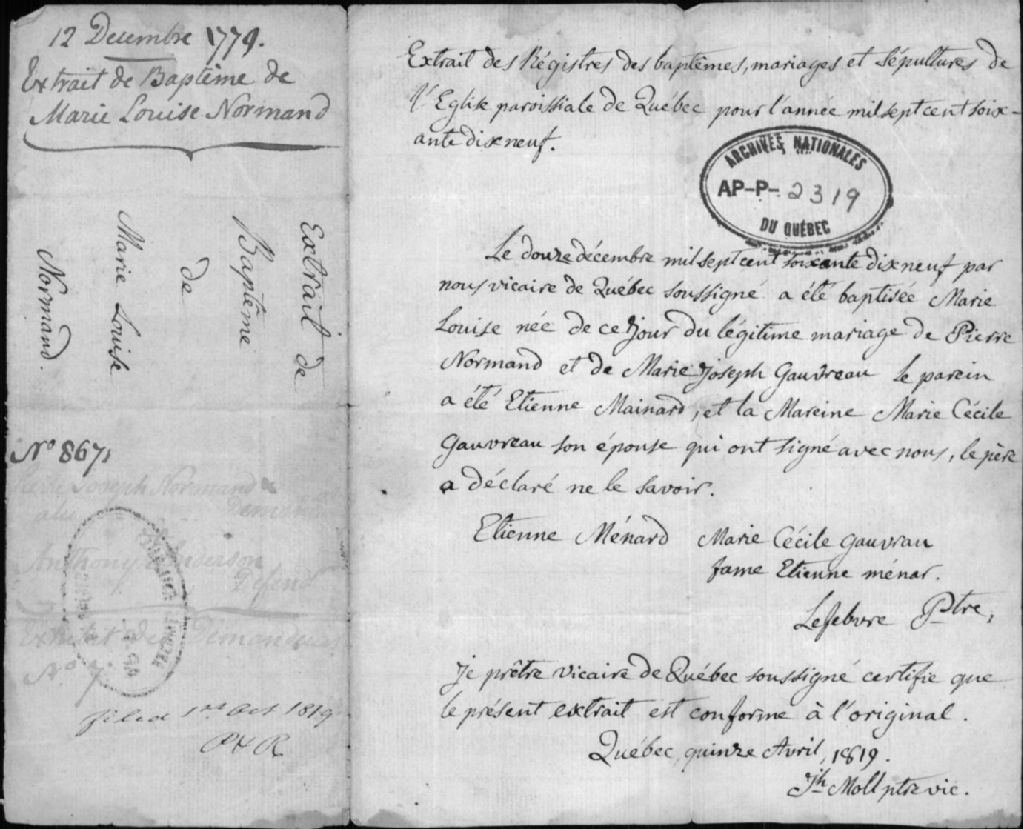 12 Decembre 1779.
Extrait de Baptême de
Marie Louise Normand
Extrait de
Baptême
de
Marie Louise
Normand.
No 867,
Joseph Normand
Demand
Anthony Anderson
Defend
No 7
filed 1st Oct 1819
Extrait des Régistres des baptêmes, mariages et Sépultures de
l'Eglise paroissiale de Québec pour l'année mil sept cent soix-
ante dix neuf.
ARCHIVES NATIONALES
AP-P-2319
DU QUÉBEC
Le douze décembre mil sept cent soixante dix neuf par
nous vicaire de Québec soussigné a été baptisée Marie
Louise née de ce jour du légitime mariage de Pierre
Normand et de Marie Joseph Gauvreau le parein
a été Etienne Mainard, et la Mareine Marie Cécile
Gauvreau son épouse qui ont signé avec nous, le père
a déclaré ne le savoir.
Etienne Ménard Marie Cécile Gauvrau
fame Etienne ménar.
Lefebvre Ptre,
Je prêtre vicaire de Québec soussigné certifie que
le présent extrait est conforme à l'original.
Québec, quinze Avril, 1819.
Jh Moll ptre vic.